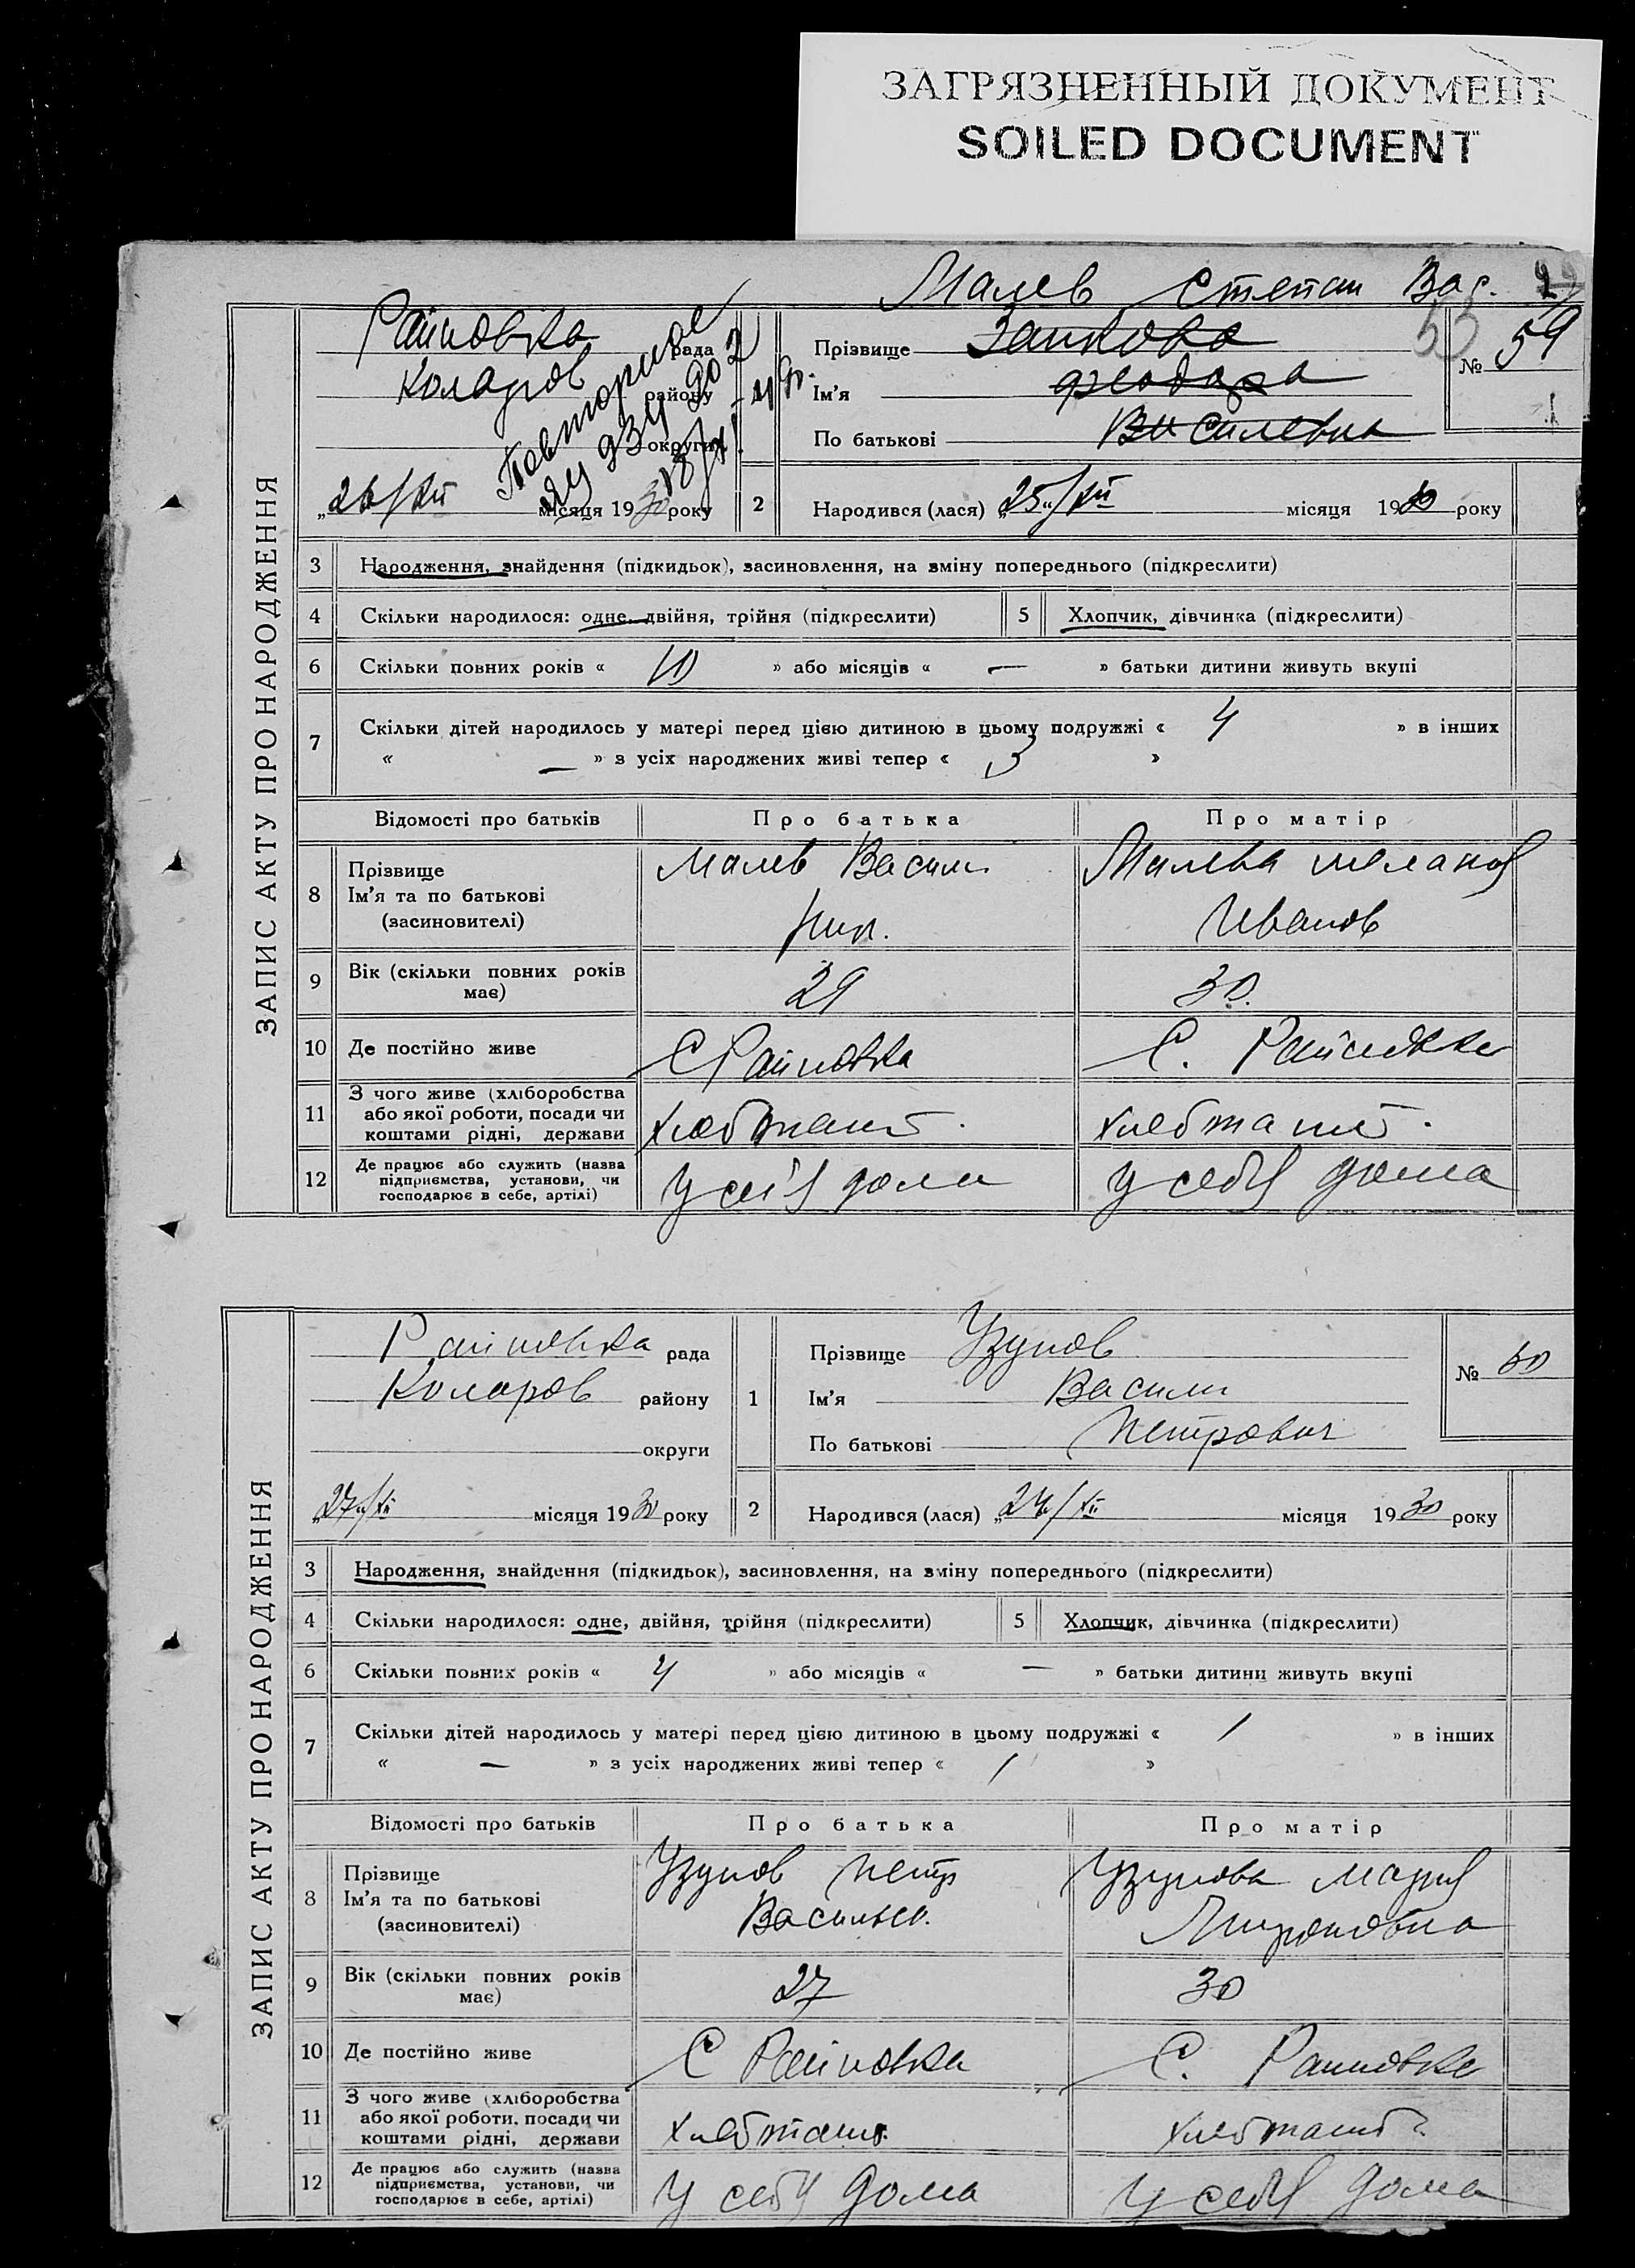 ЗАГРЯЗНЕННЫЙ ДОКУМЕНТ
SOILED DOCUMENT
Малев Степан Вас.
ЗАПИС АКТУ ПРО НАРОДЖЕННЯ
Райновка рада
Коларов району
округи
Повторное
18/XI
1
Прізвище Занкова
Ім'я Феодора
По батькові Василевна
53
№ 59
„26/XII місяця 1930 року
2 Народився (лася) „25/XII місяця 1930 року
3 Народження, знайдення (підкидьок), засиновлення, на зміну попереднього (підкреслити)
4 Скільки народилося: одне, двійня, трійня (підкреслити) 5 Хлопчик, дівчинка (підкреслити)
6 Скільки повних років « 10 » або місяців « — » батьки дитини живуть вкупі
7 Скільки дітей народилось у матері перед цією дитиною в цьому подружжі « 4 » в інших
« — » з усіх народжених живі тепер « 3 »
Відомості про батьків Про батька Про матір
8 Прізвище Ім'я та по батькові (засиновителі)
Малев Васили Малева Мелания
Иванов
9 Вік (скільки повних років має) 29 30.
10 Де постійно живе С Райновка С. Райновка
11 З чого живе (хліборобства або якої роботи, посади чи коштами рідні, держави
12 Де працює або служить (назва підприємства, установи, чи господарює в себе, артілі)
дома у себя дома
ЗАПИС АКТУ ПРО НАРОДЖЕННЯ
Райновка рада
Коларов району
округи
1
Прізвище Узунов
Ім'я Васили
По батькові Петрович
№ 60
„27/XII місяця 1930 року
2 Народився (лася) „24/XII місяця 1930 року
3 Народження, знайдення (підкидьок), засиновлення, на зміну попереднього (підкреслити)
4 Скільки народилося: одне, двійня, трійня (підкреслити) 5 Хлопчик, дівчинка (підкреслити)
6 Скільки повних років « 4 » або місяців « — » батьки дитини живуть вкупі
7 Скільки дітей народилось у матері перед цією дитиною в цьому подружжі « 1 » в інших
« — » з усіх народжених живі тепер « 1 »
Відомості про батьків Про батька Про матір
8 Прізвище Ім'я та по батькові (засиновителі)
Узунов Петр Узунова Мария
Васильев. Мироновна
9 Вік (скільки повних років має) 27 30
10 Де постійно живе С Райновка С. Райновка
11 З чого живе (хліборобства або якої роботи, посади чи коштами рідні, держави
12 Де працює або служить (назва підприємства, установи, чи господарює в себе, артілі)
у себя дома у себя дома